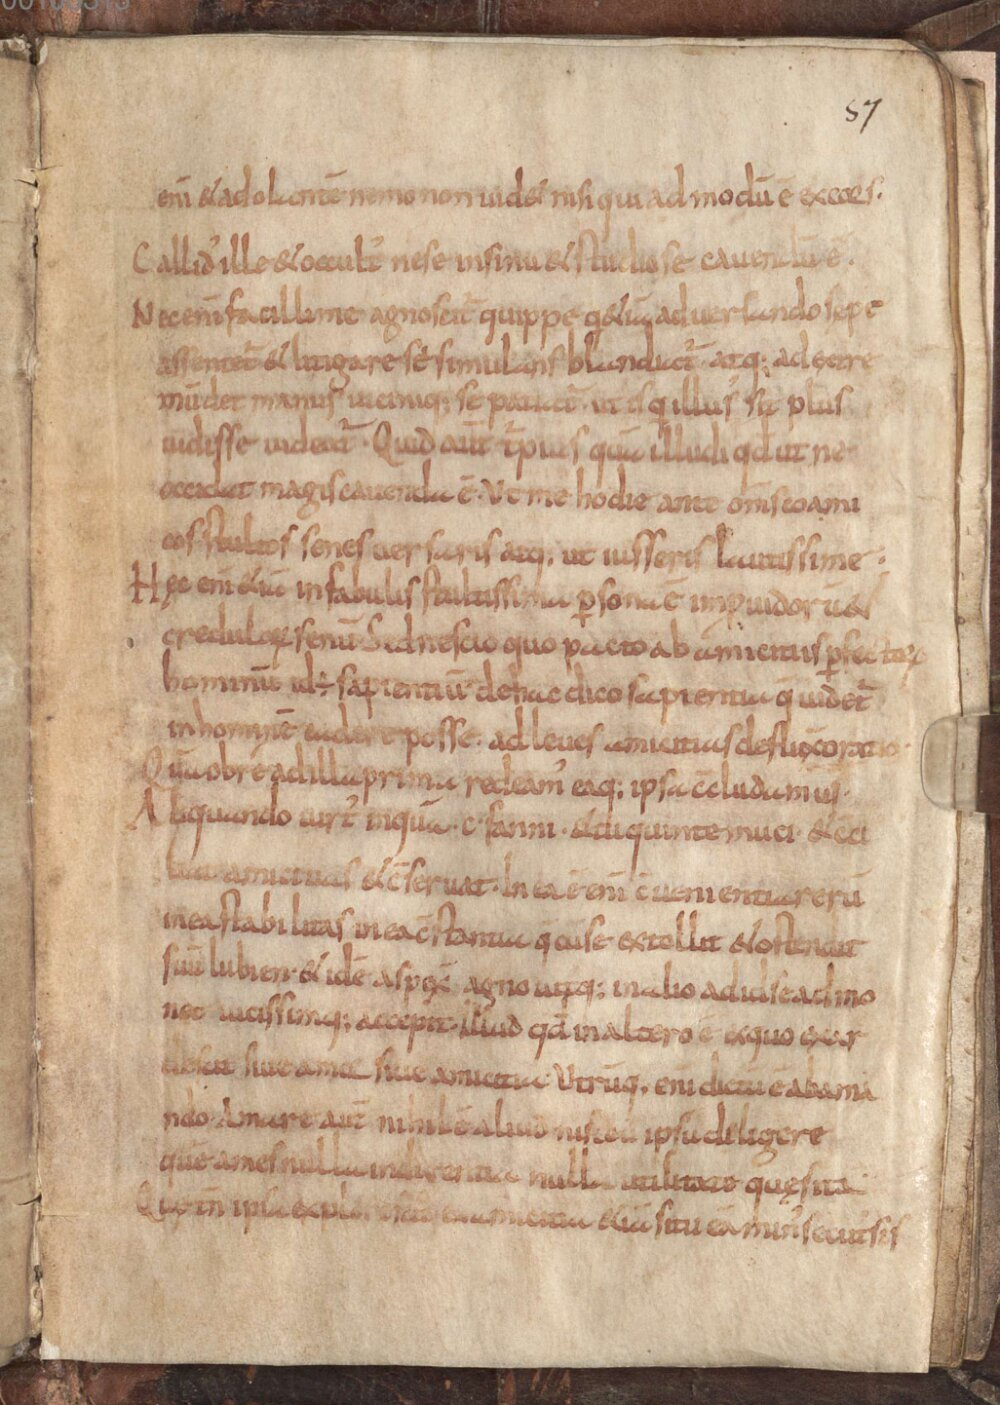 57
enī & adolantē nemo non uid& nisi qui ad modū ē excors.
Callid' ille & occult' nese insinu& studiose cauendū ē.
Nec enī facillime agnoscit̄ quippe q &iā aduersando sepe
assentet̄ & litigare sē simulans blandiat̄ atq; ad extre
mū det manus uincīq; se patiat̄ ut is q illus' sit plus
uidisse uideat̄. Quid aut̄ t̄pius quā illudi qd ut ne
accidat magis cauendū ē. Ut me hodie ante om̄s comi
cos stultos senes uersaris atq; ut iusseris lautissime.
Hęc enī &iā in fabulis stultissima p̱sona ē inp̱uidorū &
credulorꝝ senū. Sed nescio quo pacto ab amicitiis p̱fectorꝝ
hominū id÷ sapientiū de hac dico sapientia q̄ uidet̄
in hominē cadere posse. ad leues amicitias deflux oratio.
Quā obrē ad illa prima redeam' eaq; ipsa c̄cludam'
Aliquando uirt' inquā. c. fanni. & tu quinte muci. & c̄ci
liat amicitias & c̄seruat. In ea ē enī c̄uenientia rerū
in ea stabilitas in ea c̄stantia q̄ cū se extollit & ostendit
suū lumen & idē aspex̄ agnouitq; in alio ad id se admo
uet uicissimq; accepit illud qd in altero ē exquo exar
descit siue amor siue amicitia Utrūq; enī dictū ē ab ama
ndo. Amare aut̄ nihil ē aliud nisi eū ipsū diligere
quē ames nulla indigentia nulla utilitate quęsita
Quę tn̄ ipsa amicitia &iā si tu eā min' secut' sis